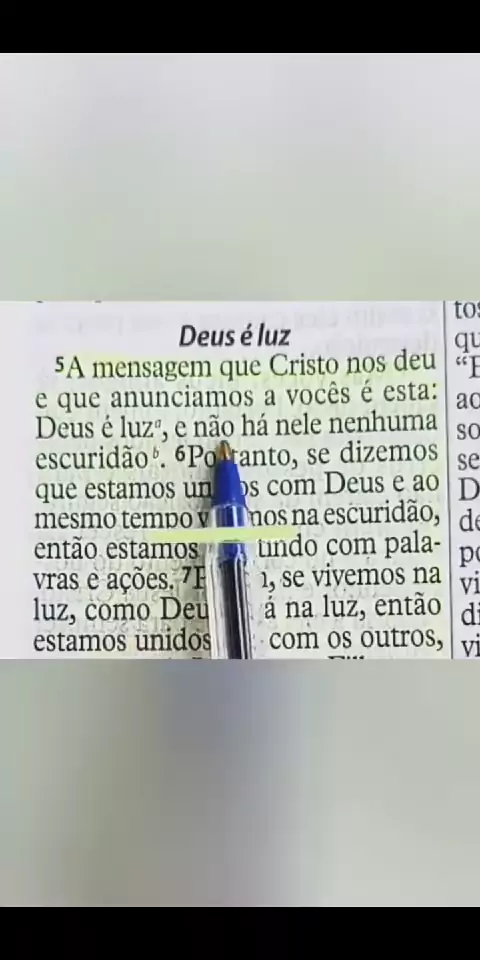 Deus é luz
⁵A mensagem que Cristo nos deu
e que anunciamos a vocês é esta:
Deus é luzᵃ, e não há nele nenhuma
escuridãoᵇ. ⁶Po tanto, se dizemos
que estamos un os com Deus e ao
mesmo tempo v mos na escuridão,
então estamos tindo com pala-
vras e ações. ⁷P , se vivemos na
luz, como Deu á na luz, então
estamos unidos com os outros,
tos
qu
“E
ao
so
se
D
de
po
vi
di
vi